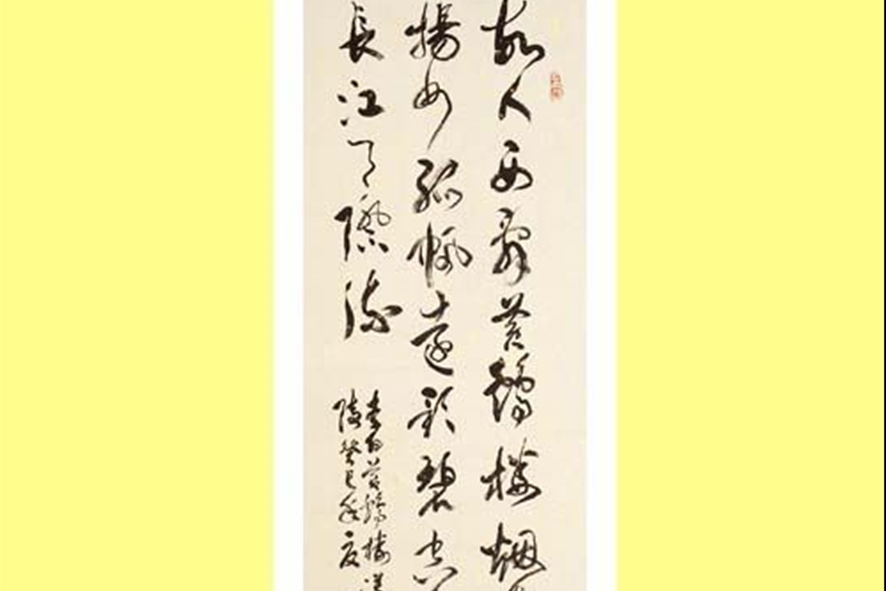 故人西辭黄鶴樓烟
揚州孤帆遠影碧空
長江天際流
李白黄鶴樓送
陵癸巳年夏